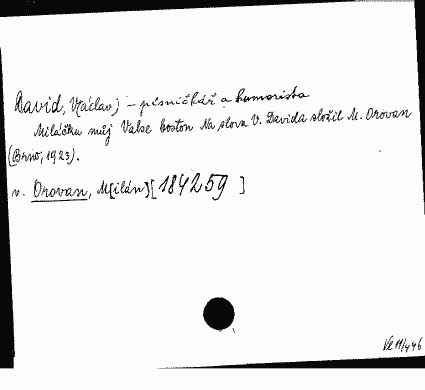 David, V(áclav) – písničkář a humorista
Miláčku můj Valse boston Na slova V. Davida složil M. Orovan
(Brno, 1923).
v. Orovan, M[ilán] [184259 ]